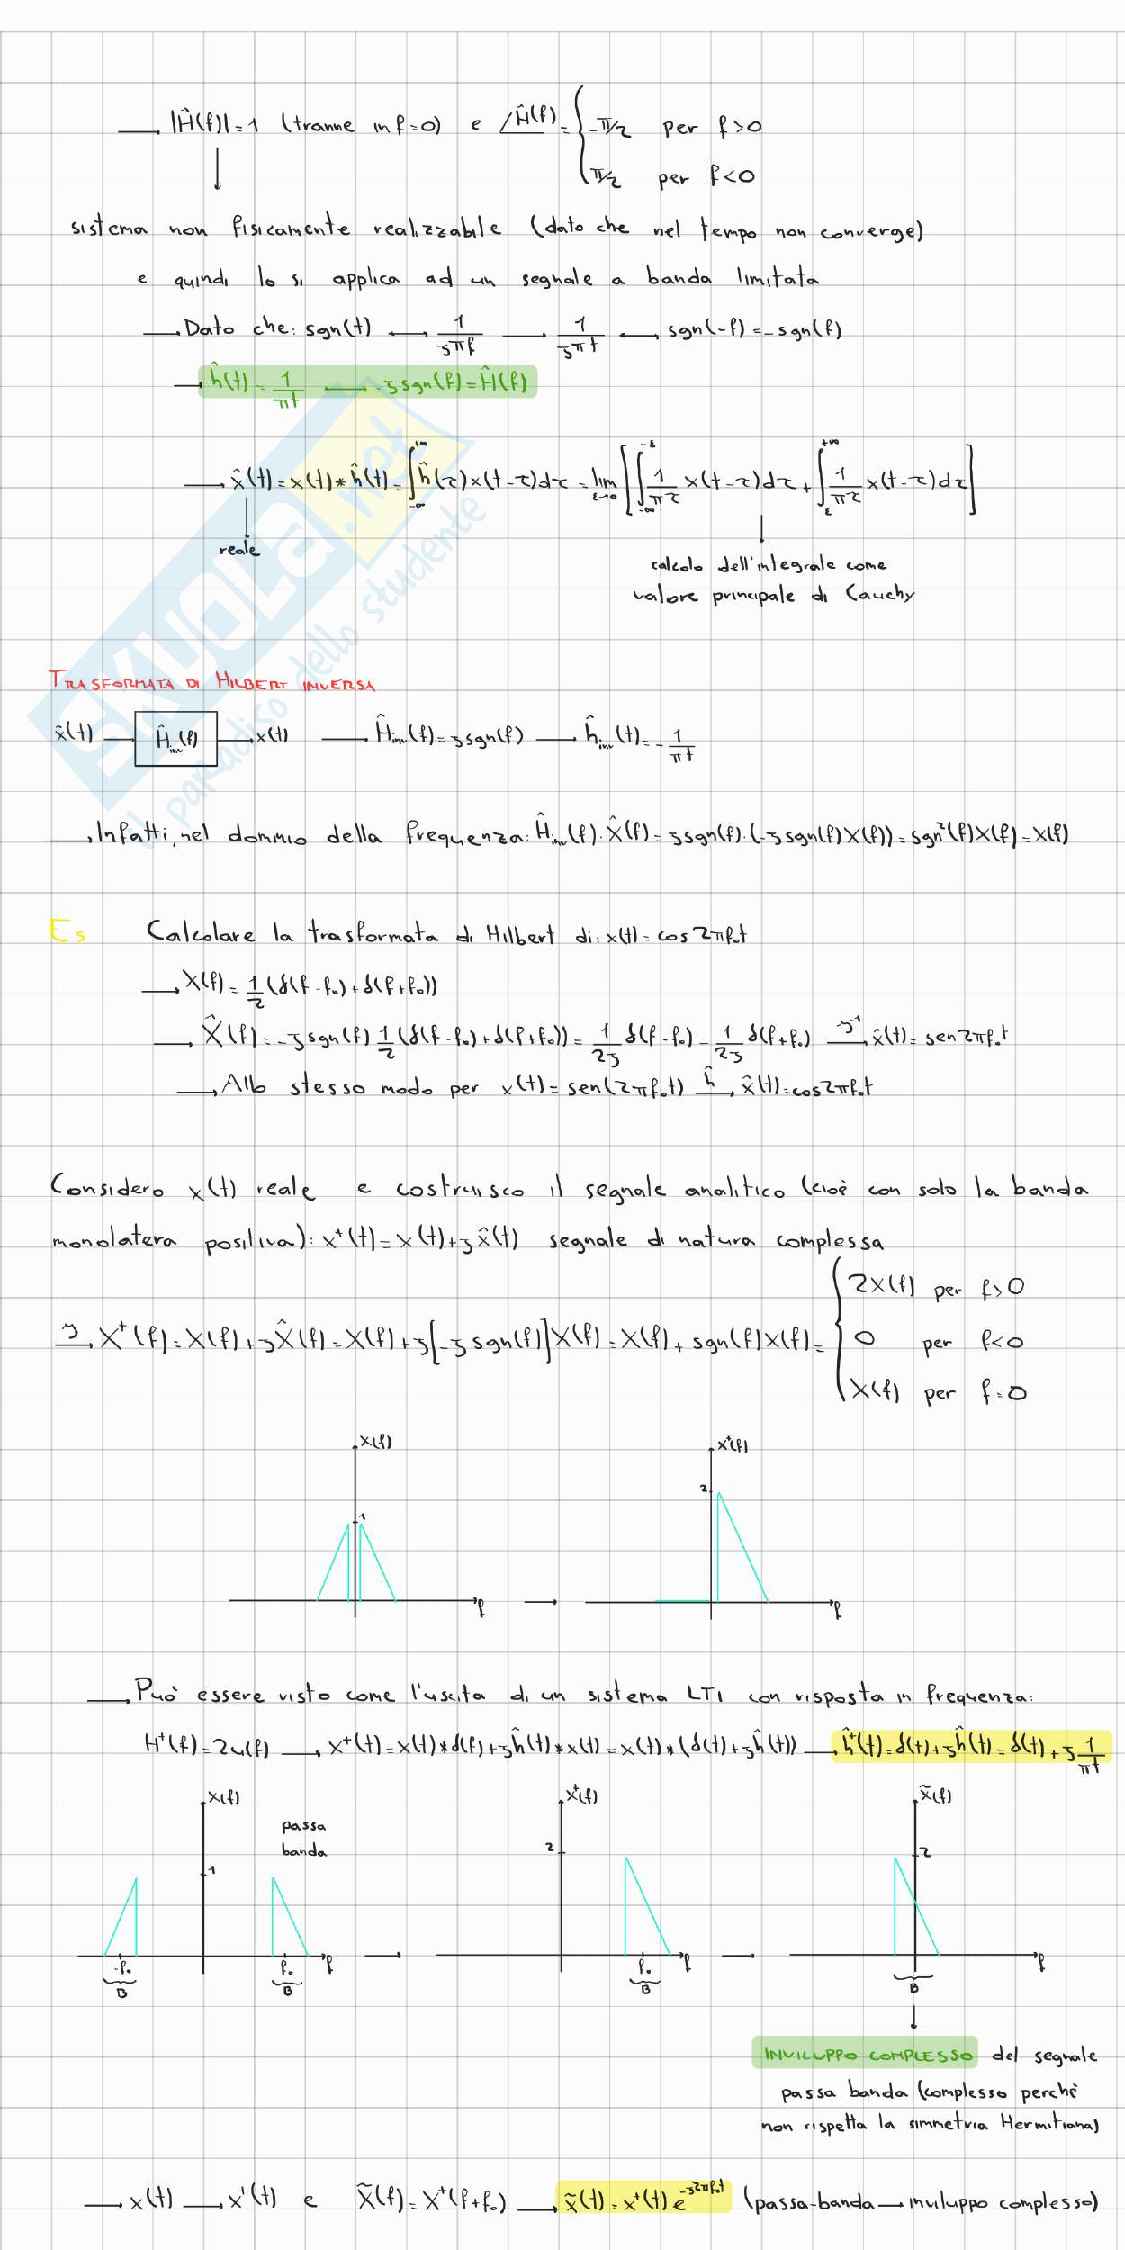 → |Ĥ(f)| = 1 (tranne in f=0) e ∠Ĥ(f) = { -π/2 per f>0
π/2 per f<0
sistema non fisicamente realizzabile (dato che nel tempo non converge)
e quindi lo si applica ad un segnale a banda limitata
→ Dato che: sgn(t) → 1/jπf → 1/jπt → sgn(-f) = -sgn(f)
→ ĥ(t) = 1/πt → -j sgn(f) = Ĥ(f)
→ x̂(t) = x(t) * ĥ(t) = ∫_{-∞}^{+∞} ĥ(τ) x(t-τ)dτ = lim_{ε→0} [ ∫_{-∞}^{-ε} 1/πτ x(t-τ)dτ + ∫_{ε}^{+∞} 1/πτ x(t-τ)dτ ]
reale
calcolo dell'integrale come
valore principale di Cauchy
SKUOLA.net
il paradiso dello studente
TRASFORMATA DI HILBERT INVERSA
x̂(t) → Ĥinv(f) → x(t) → Ĥinv(f) = j sgn(f) → ĥinv(t) = -1/πt
→ Infatti, nel dominio della frequenza: Ĥinv(f)·X̂(f) = j sgn(f)·(-j sgn(f)X(f)) = sgn²(f)X(f) = X(f)
Es Calcolare la trasformata di Hilbert di: x(t) = cos2πf₀t
→ X(f) = 1/2 (δ(f-f₀) + δ(f+f₀))
→ X̂(f) = -j sgn(f) 1/2 (δ(f-f₀) + δ(f+f₀)) = 1/2j δ(f-f₀) - 1/2j δ(f+f₀) →^{ℱ⁻¹} x̂(t) = sen2πf₀t
→ Allo stesso modo per x(t) = sen(2πf₀t) →^{ĥ} x̂(t) = cos2πf₀t
Considero x(t) reale e costruisco il segnale analitico (cioè con solo la banda
monolatera positiva): x⁺(t) = x(t) + j x̂(t) segnale di natura complessa
→^{ℱ} X⁺(f) = X(f) + j X̂(f) = X(f) + j[-j sgn(f)]X(f) = X(f) + sgn(f)X(f) = { 2X(f) per f>0
0 per f<0
X(f) per f=0
X(f)
1
f
→
X⁺(f)
2
f
→ Può essere visto come l'uscita di un sistema LTI con risposta in frequenza:
H⁺(f) = 2u(f) → x⁺(t) = x(t) * δ(f) + jĥ(t) * x(t) = x(t) * (δ(t) + jĥ(t)) → ĥ⁺(t) = δ(t) + jĥ(t) = δ(t) + j 1/πt
X(f)
passa
banda
1
-f₀ f₀ f
B B
→
X⁺(f)
2
f₀ f
B
→
X̃(f)
2
f
B
INVILUPPO COMPLESSO del segnale
passa banda (complesso perchè
non rispetta la simmetria Hermitiana)
→ x(t) → x⁺(t) e X̃(f) = X⁺(f+f₀) → x̃(t) = x⁺(t) e^{-j2πf₀t} (passa-banda → inviluppo complesso)